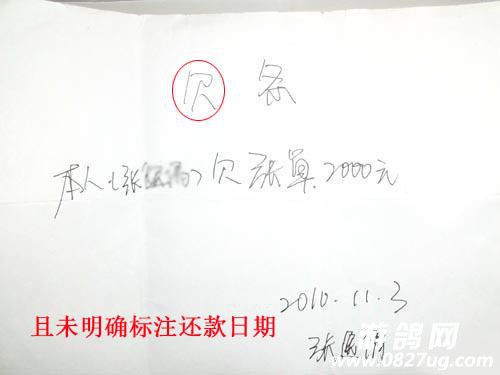 欠条
本人(张 )欠张单.2000元
2010.11.3
且未明确标注还款日期
张
鸽网
www.0827ug.com